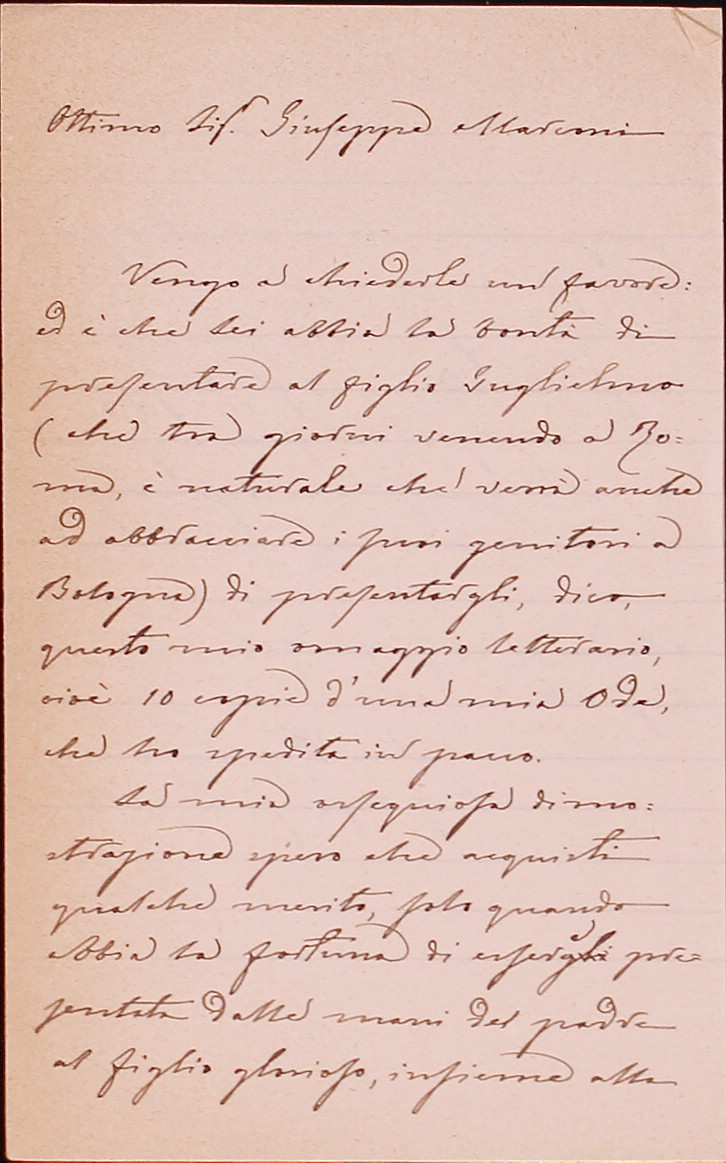 Ottimo Sig.r Giuseppe Marconi
Vengo a chiederle un favore:
ed è che Lei abbia la bontà di
presentare al figlio Guglielmo
(che tra giorni venendo a Ro=
ma, è naturale che verrà anche
ad abbracciare i suoi genitori a
Bologna) di presentargli, dico,
questo mio omaggio letterario,
cioè 10 copie d'una mia Ode,
che ho spedita in pacco.
La mia ossequiosa dimo=
strazione spero che acquisti
qualche merito, solo quando
abbia la fortuna di essergli pre=
sentata dalle mani del padre
al figlio glorioso, insieme alla